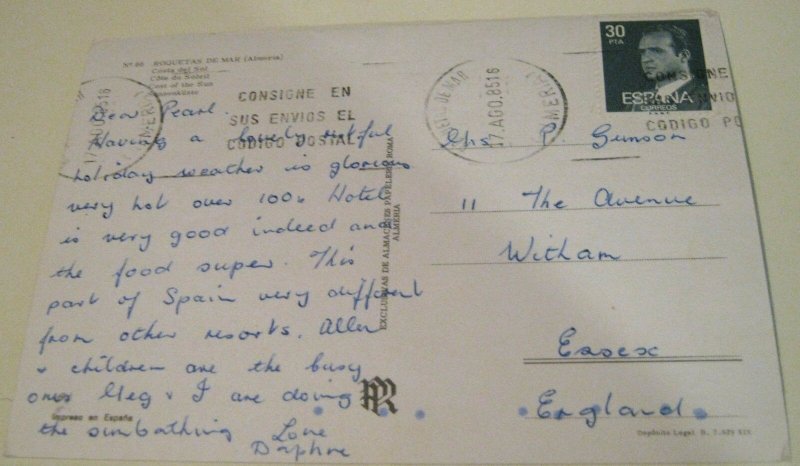 Nº 66 ROQUETAS DE MAR (Almería)
Costa del Sol
Côte du Soleil
Cost of the Sun
Sonnenküste
CONSIGNE EN
SUS ENVIOS EL
CODIGO POSTAL
17 AGO. 85 16
Dear Pearl.
Having a lovely restful
holiday weather is glorious
very hot over 100. Hotel
is very good indeed and
the food super. This
part of Spain very different
from other resorts. Allen
& children are the busy
ones Meg & I are doing
the sunbathing Love
Daphne
Impreso en España
EXCLUSIVAS DE ALMACENES PAPELERIA ROMA
ALMERIA
30
PTA
ESPAÑA
CORREOS
DE MAR
17 AGO. 85 16
CONSIGNE
CODIGO PO
Mrs P. Gunson
11 The Avenue
Witham
Essex
England.
Depósito Legal B.